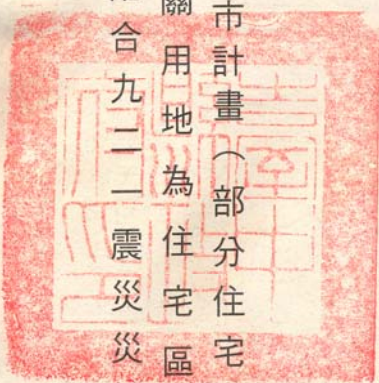 市計畫（部分住宅
關用地為住宅區
合九二一震災災